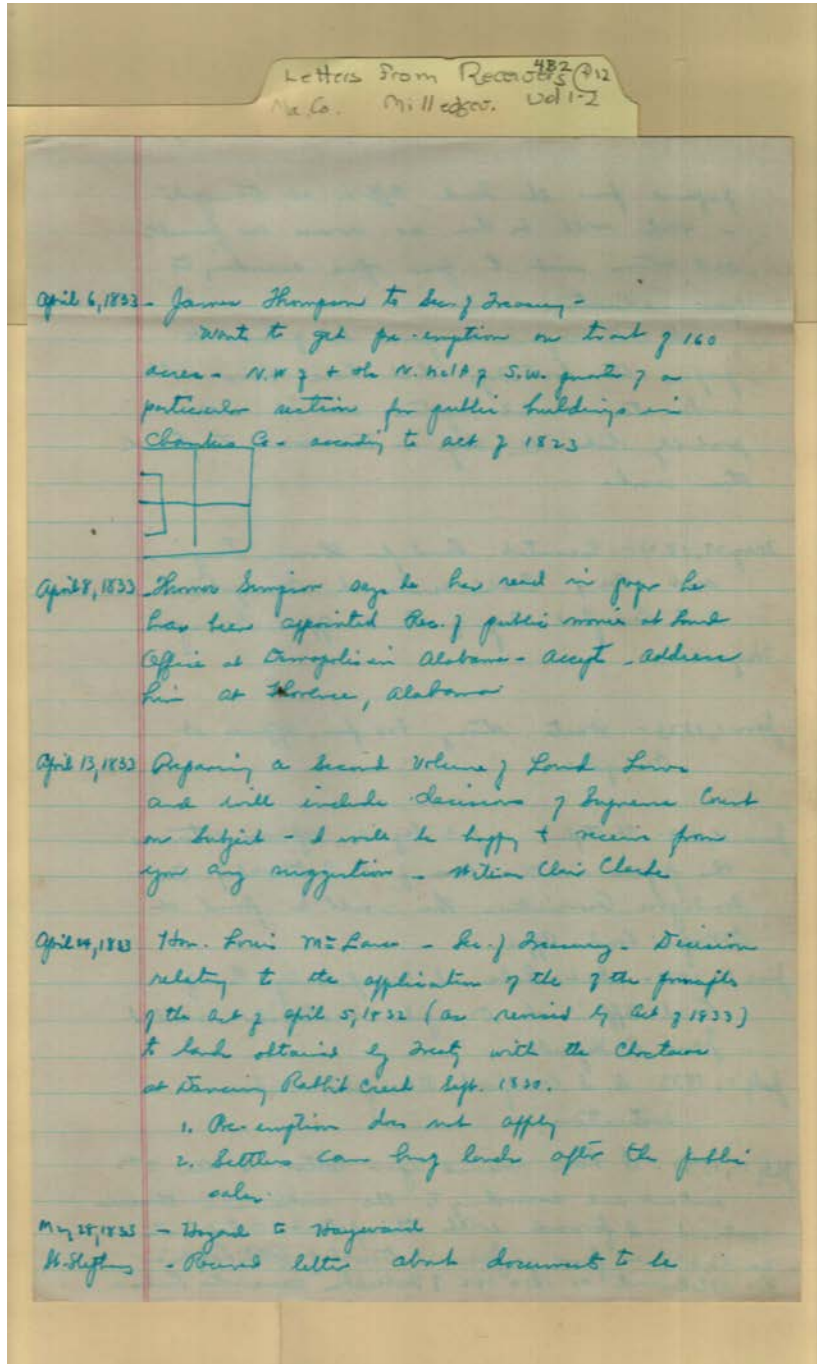 Letters From Receivers 4B2 @ 12
Ma. Co. Milledgev. Vol 1-2
April 6, 1833 - James Thompson to Sec. of Treasury -
Wants to get pre-emption on tract of 160
acres - N.W. of + the N. half of S.W. quarter of a
particular section for public buildings in
Co. - according to act of 1823
April 8, 1833 Thomas Simpson says he has read in paper he
has been appointed Rec. of public monies at Land
Office at Demopolis in Alabama - accepts - address
him at Florence, Alabama
April 13, 1833 Preparing a Second Volume of Land Laws
and will include decisions of Supreme Court
on Subject - I will be happy to receive from
you any suggestion - Clarke
April 24, 1833 Hon. Louis McLane - Sec. of Treasury - Decision
relating to the application of the of the principles
of the act of April 5, 1832 (as revised by Act of 1833)
to lands obtained by Treaty with the Choctaws
at Dancing Rabbit Creek Sept. 1830.
1. Pre-emption does not apply
2. Settlers can buy lands after the public
sales.
May 28, 1833 - Hazard to Hayward
St. Stephens - Received letter about document to be